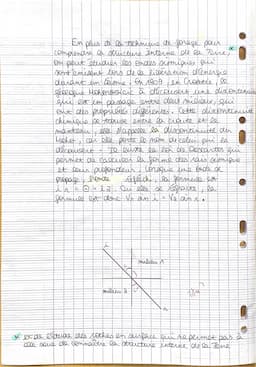 En plus de la technique de forage pour
comprendre la structure interne de la Terre,
on peut étudier les ondes sismiques qui
sont émises lors de la libération d'énergie
durant un séisme. En 1909, en Croatie, le
géologue Mohorovicic à découvert une discontinuité
qui est un passage entre deux milieux, qui
ont des propriétés différentes. Cette discontinuité
chimique se trouve entre la croute et le
manteau, elle s'appelle la discontinuité du
Moho, car elle porte le nom de celui qui l'a
découvert. Il existe la loi de Descartes qui
permet de calculer la forme des rais sismiques
et leur profondeur. Lorsque une onde se
propage, la formule est
Ou elle se réfracte, la
formule est donc V2 sin i = V1 sin r.
i
milieu 1
milieu 2
r
* et de l'étude des roches en surface qui ne permet pas à
elle seule de connaître la structure interne de la Terre